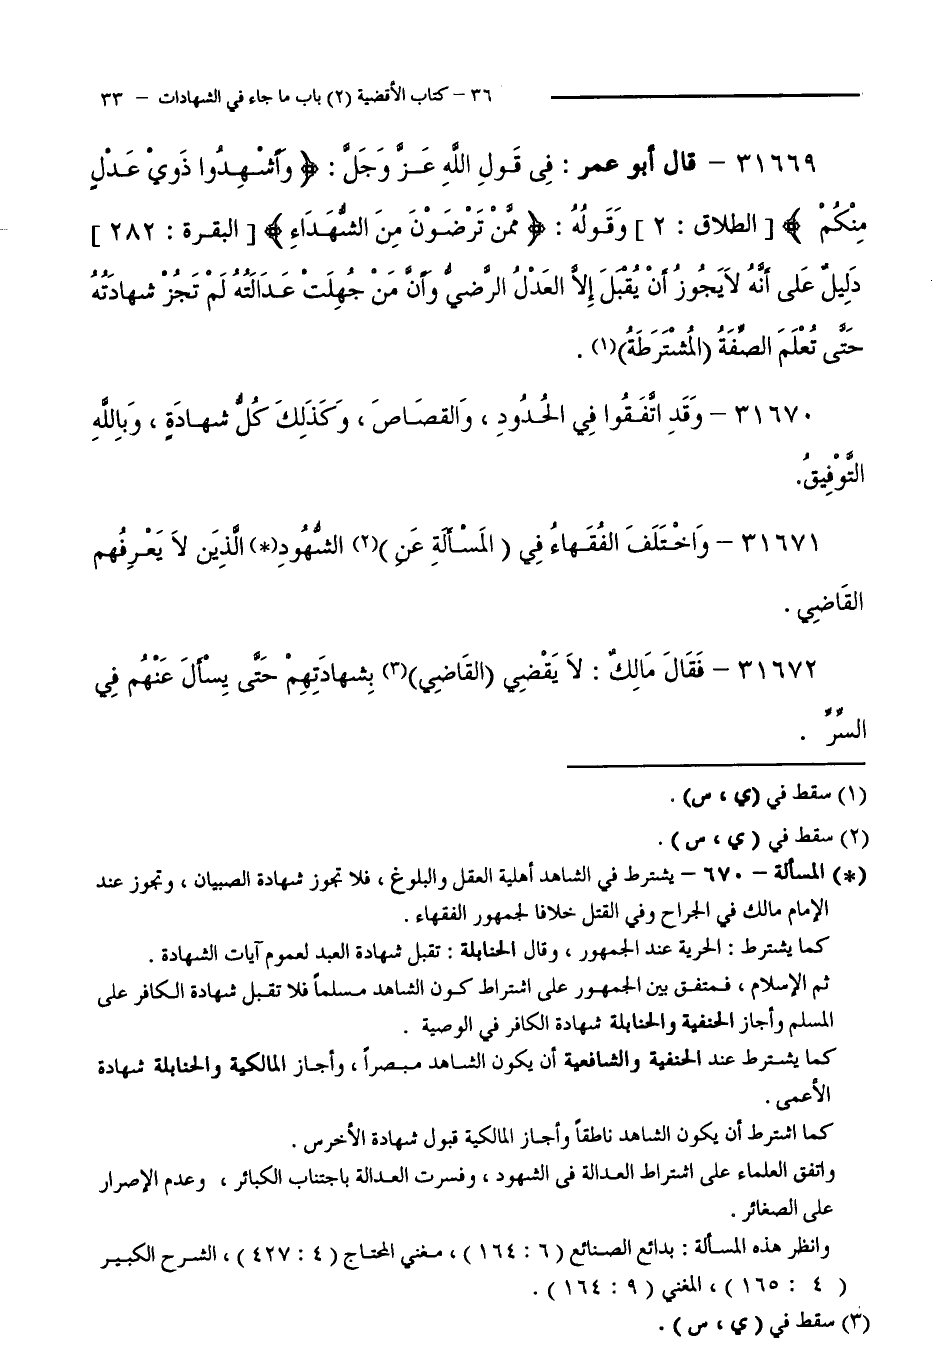 ٣٦ – كتاب الأقضية (٢) باب ما جاء في الشهادات – ٣٣
٣١٦٦٩ – قال أبو عمر : فِى قَولِ اللَّهِ عَزَّ وَجَلَّ : ﴿ وَأَشْهِدُوا ذَوِيْ عَدْلٍ
مِنْكُمْ ﴾ [ الطلاق : ٢ ] وَقَولُهُ : ﴿ مِمَّنْ تَرْضَوْنَ مِنَ الشُّهَدَاءِ ﴾ [ البقرة : ٢٨٢ ]
دَلِيلٌ عَلى أَنَّهُ لاَيَجُوزُ أَنْ يُقْبَلَ إِلاَّ العَدْلُ الرَّضيُّ وأَنَّ مَنْ جُهِلَتْ عَدَالَتُهُ لَمْ تَجُزْ شهادَتُهُ
حَتَّى تُعْلَمَ الصِّفَةُ (المُشْتَرَطَةُ)(١) .
٣١٦٧٠ – وَقَدِ اتَّفَقُوا فِي الحُدُودِ ، وَالقصَاصَ ، وَكَذَلِكَ كُلُّ شهادَةٍ ، وَبِاللَّهِ
التَّوْفِيقُ.
٣١٦٧١ – وَاخْتَلَفَ الفُقَهاءُ فِي ( المَسْأَلَةِ عَنِ )(٢) الشُّهُودِ(*) الَّذِينَ لاَ يَعْرِفُهم
القَاضِي .
٣١٦٧٢ – فَقَالَ مَالِكٌ : لاَ يَقْضِي (القَاضِي)(٣) بِشهادَتِهِمْ حَتَّى يسْأَلَ عَنْهُم فِي
السِّرِّ .
(١) سقط في (ي ، س) .
(٢) سقط في ( ي ، س ) .
(*) المسألة – ٦٧٠ – يشترط في الشاهد أهلية العقل والبلوغ ، فلا تجوز شهادة الصبيان ، وتجوز عند
الإمام مالك في الجراح وفي القتل خلافا لجمهور الفقهاء .
كما يشترط : الحرية عند الجمهور ، وقال الحنابلة : تقبل شهادة العبد لعموم آيات الشهادة .
ثم الإسلام ، فمتفق بين الجمهور على اشتراط كون الشاهد مسلماً فلا تقبل شهادة الكافر على
المسلم وأجاز الحنفية والحنابلة شهادة الكافر في الوصية .
كما يشترط عند الحنفية والشافعية أن يكون الشاهد مبصراً ، وأجاز المالكية والحنابلة شهادة
الأعمى .
كما اشترط أن يكون الشاهد ناطقاً وأجاز المالكية قبول شهادة الأخرس .
واتفق العلماء على اشتراط العدالة فى الشهود ، وفسرت العدالة باجتناب الكبائر ، وعدم الإصرار
على الصغائر .
وانظر هذه المسألة : بدائع الصنائع ( ٦ : ١٦٤ ) ، مغني المحتاج ( ٤ : ٤٢٧ ) ، الشرح الكبير
( ٤ : ١٦٥ ) ، المغني ( ٩ : ١٦٤ ) .
(٣) سقط في ( ي ، س ) .